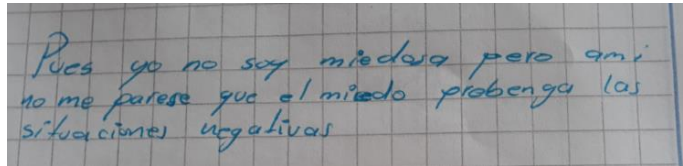 Pues yo no soy miedosa pero ami
no me parese que el miedo probenga las
situaciones negativas